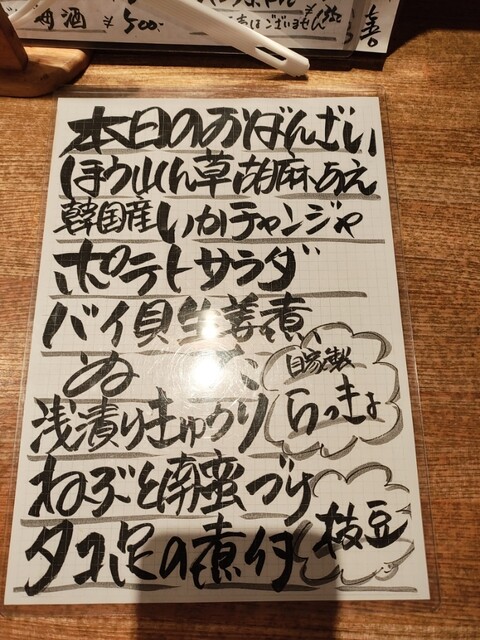 梅酒 ¥500
ございません
本日のおばんざい
ほうれん草胡麻あえ
韓国産いかチャンジャ
ポテトサラダ
バイ貝生姜煮
ぬ
自家製
らっきょ
浅漬りきゅうり
ねぶと南蛮づけ
枝豆
タコ足の煮付